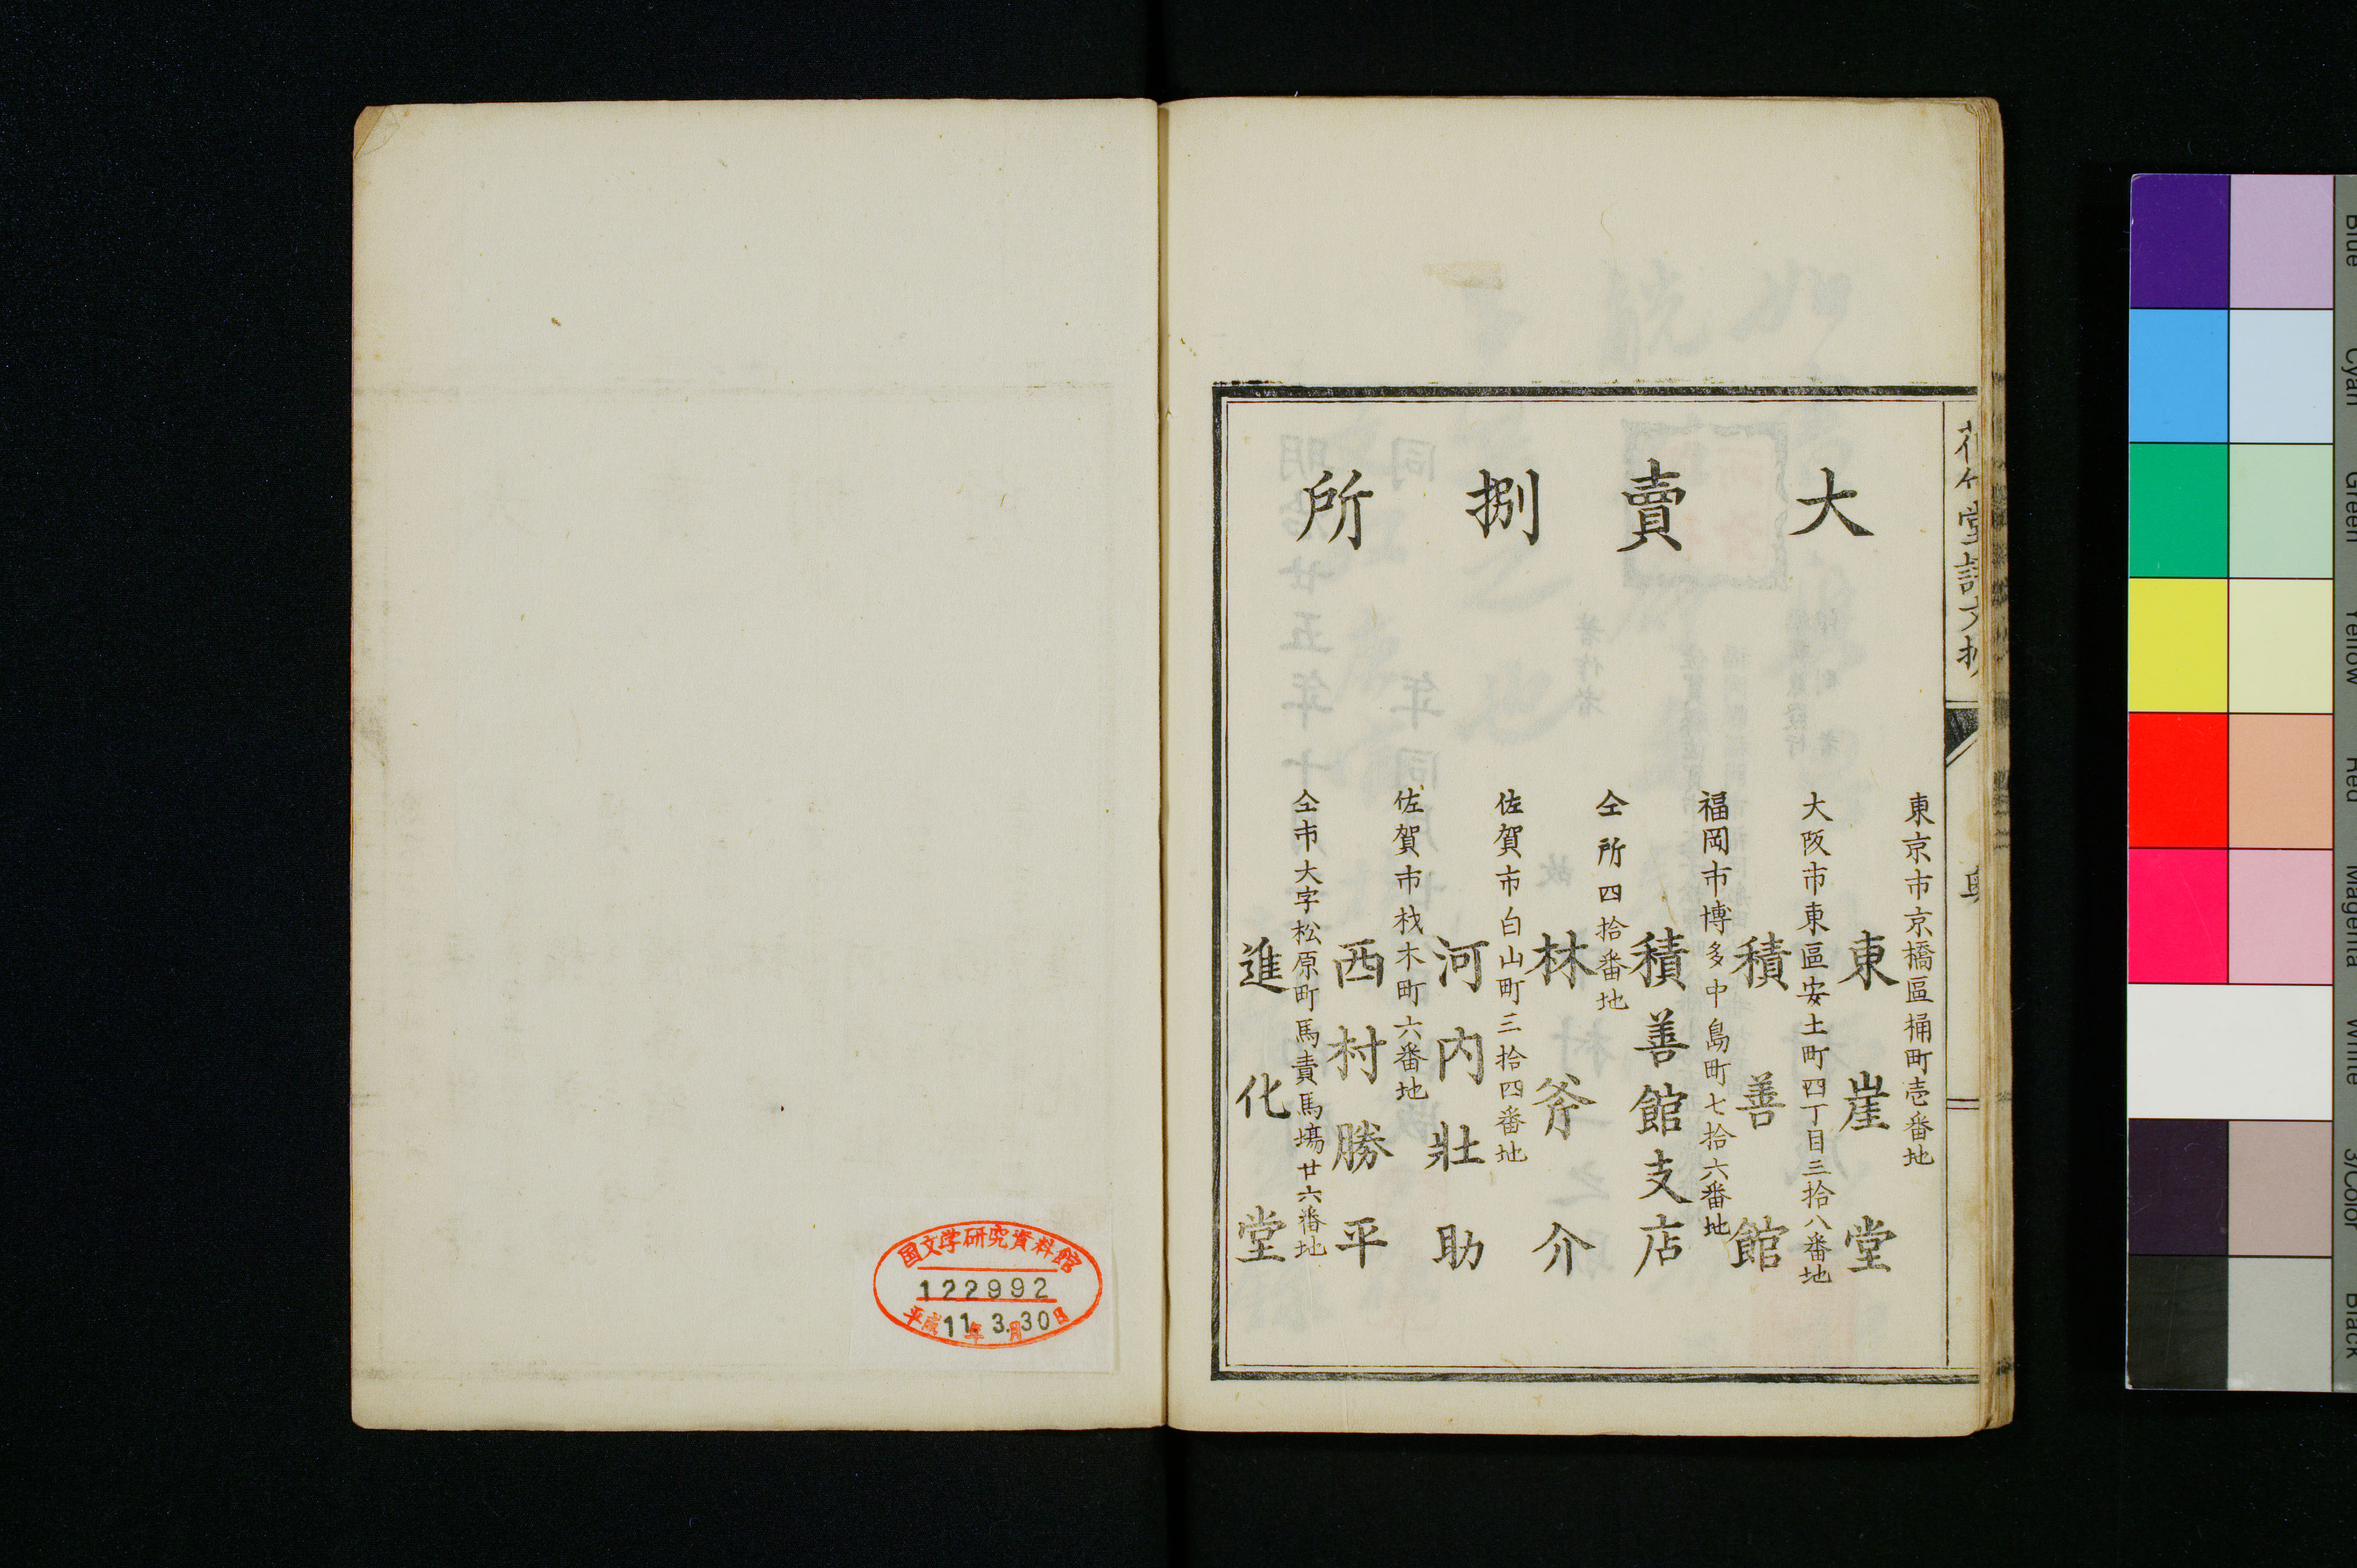 大賣捌所
東京市京橋區桶町壱番地
東崖堂
大阪市東區安土町四丁目三拾八番地
積善館
福岡市博多中島町七拾六番地
積善館支店
仝所四拾番地
林斧介
佐賀市白山町三拾四番地
河内壯助
佐賀市材木町六番地
西村勝平
仝市大字松原町馬責馬塲廿六番地
進化堂
国文学研究資料館
122992
平成11年3月30日
Blue
Cyan
Green
Yellow
Red
Magenta
White
3/Color
Black